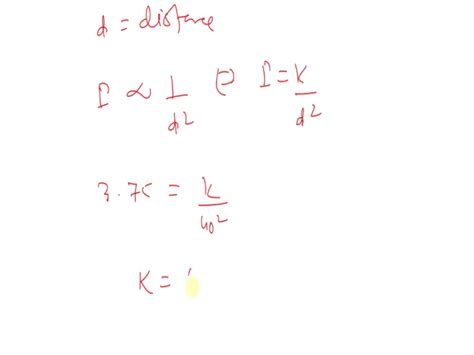 d = distance
I ∝ 1/d² ⇒ I = K/d²
3.75 = k/40²
K =